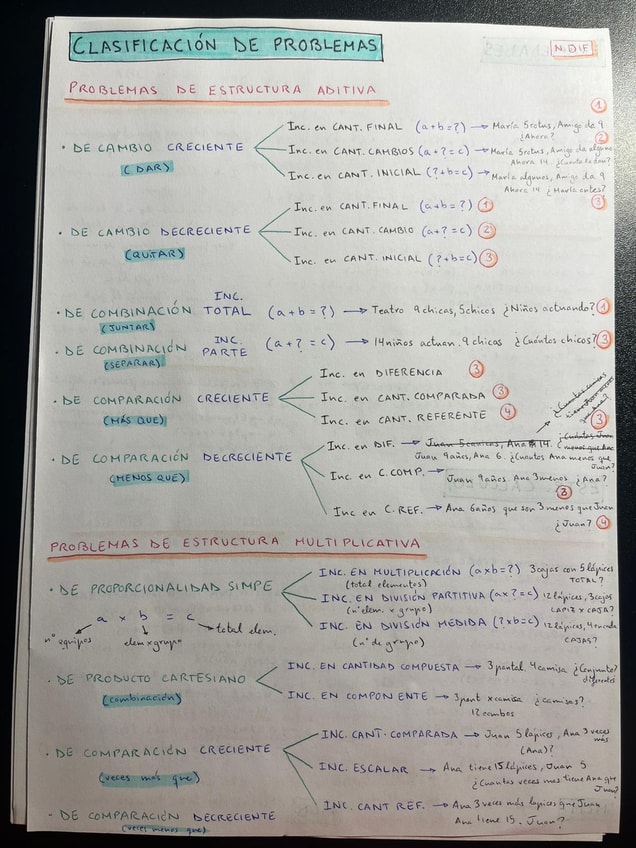 CLASIFICACIÓN DE PROBLEMAS
N. DIF
PROBLEMAS DE ESTRUCTURA ADITIVA
· DE CAMBIO CRECIENTE
(DAR)
Inc. en CANT. FINAL (a+b=?) → María 5 rotus, Amigo da 9 ¿Ahora? 1
Inc. en CANT. CAMBIOS (a+?=c) → María 5 rotus, Amigo da algunos Ahora 14. ¿Cuánto le dan? 2
Inc. en CANT. INICIAL (?+b=c) → María algunos, Amigo da 9 Ahora 14 ¿María antes? 3
· DE CAMBIO DECRECIENTE
(QUITAR)
Inc. en CANT. FINAL (a+b=?) 1
Inc. en CANT. CAMBIO (a+?=c) 2
Inc. en CANT. INICIAL (?+b=c) 3
· DE COMBINACIÓN INC. TOTAL (a+b=?) → Teatro 9 chicas, 5 chicos ¿Niños actuando? 1
(JUNTAR)
· DE COMBINACIÓN INC. PARTE (a+?=c) → 14 niños actuan. 9 chicas ¿Cuántos chicos? 3
(SEPARAR)
· DE COMPARACIÓN CRECIENTE
(MÁS QUE)
Inc. en DIFERENCIA 3
Inc. en CANT. COMPARADA 3
Inc. en CANT. REFERENTE 4
· DE COMPARACIÓN DECRECIENTE
(MENOS QUE)
Inc. en DIF. → Juan 5 canicas, Ana 14. ¿Cuántas Juan menos que Ana 3
Juan 9 años, Ana 6. ¿Cuantos Ana menos que Juan?
Inc en C.COMP. → Juan 9 años Ana 3 menos ¿Ana?
3
Inc en C.REF. → Ana 6 años que son 3 menos que Juan ¿Juan? 4
PROBLEMAS DE ESTRUCTURA MULTIPLICATIVA
· DE PROPORCIONALIDAD SIMPE
a x b = c
nº equipos
elem x grupo
total elem.
INC. EN MULTIPLICACIÓN (axb=?) 3 cajas con 5 lápices TOTAL?
(total elementos)
INC. EN DIVISIÓN PARTITIVA (ax?=c) 12 lápices, 3 cajas LAPIZ x CAJA?
(nº elem. x grupo)
INC. EN DIVISIÓN MEDIDA (?xb=c) 12 lápices, 4 en cada CAJAS?
(nº de grupo)
· DE PRODUCTO CARTESIANO
(combinación)
INC. EN CANTIDAD COMPUESTA → 3 pantal. 4 camisa ¿Conjuntos? diferentes
INC. EN COMPONENTE → 3 pant x camisa ¿camisas?
12 combos
· DE COMPARACIÓN CRECIENTE
(veces más que)
INC. CANT. COMPARADA → Juan 5 lápices, Ana 3 veces más
(Ana)?
INC. ESCALAR → Ana tiene 15 lápices, Juan 5
¿Cuantas veces mas tiene Ana que Juan?
INC. CANT REF. → Ana 3 veces más lapices que Juan.
Ana tiene 15. Juan?
· DE COMPARACIÓN DECRECIENTE
(veces menos que)